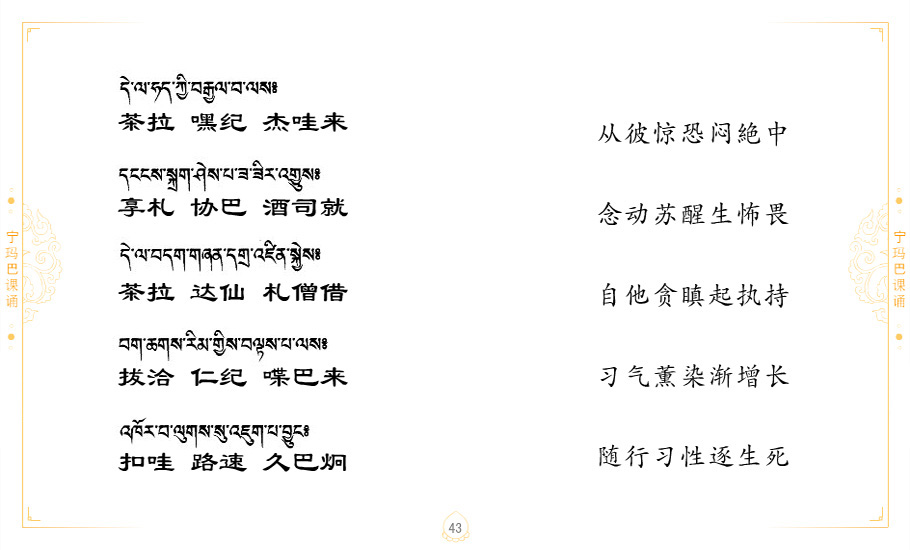 དེ་ལ་ཧད་ཀྱི་བརྒྱལ་བ་ལས༔
茶拉 嘿纪 杰哇来
从彼惊恐闷絶中
དངངས་སྐྲག་ཤེས་པ་ཟ་ཟིར་འགྱུས༔
享札 协巴 酒司就
念动苏醒生怖畏
དེ་ལ་བདག་གཞན་དགྲ་འཛིན་སྐྱེས༔
茶拉 达仙 札僧借
自他贪瞋起执持
བག་ཆགས་རིམ་གྱིས་བལྟས་པ་ལས༔
拔洽 仁纪 喋巴来
习气薰染渐增长
འཁོར་བ་ལུགས་སུ་འཇུག་པ་བྱུང༔
扣哇 路速 久巴炯
随行习性逐生死
宁玛巴课诵
宁玛巴课诵
43